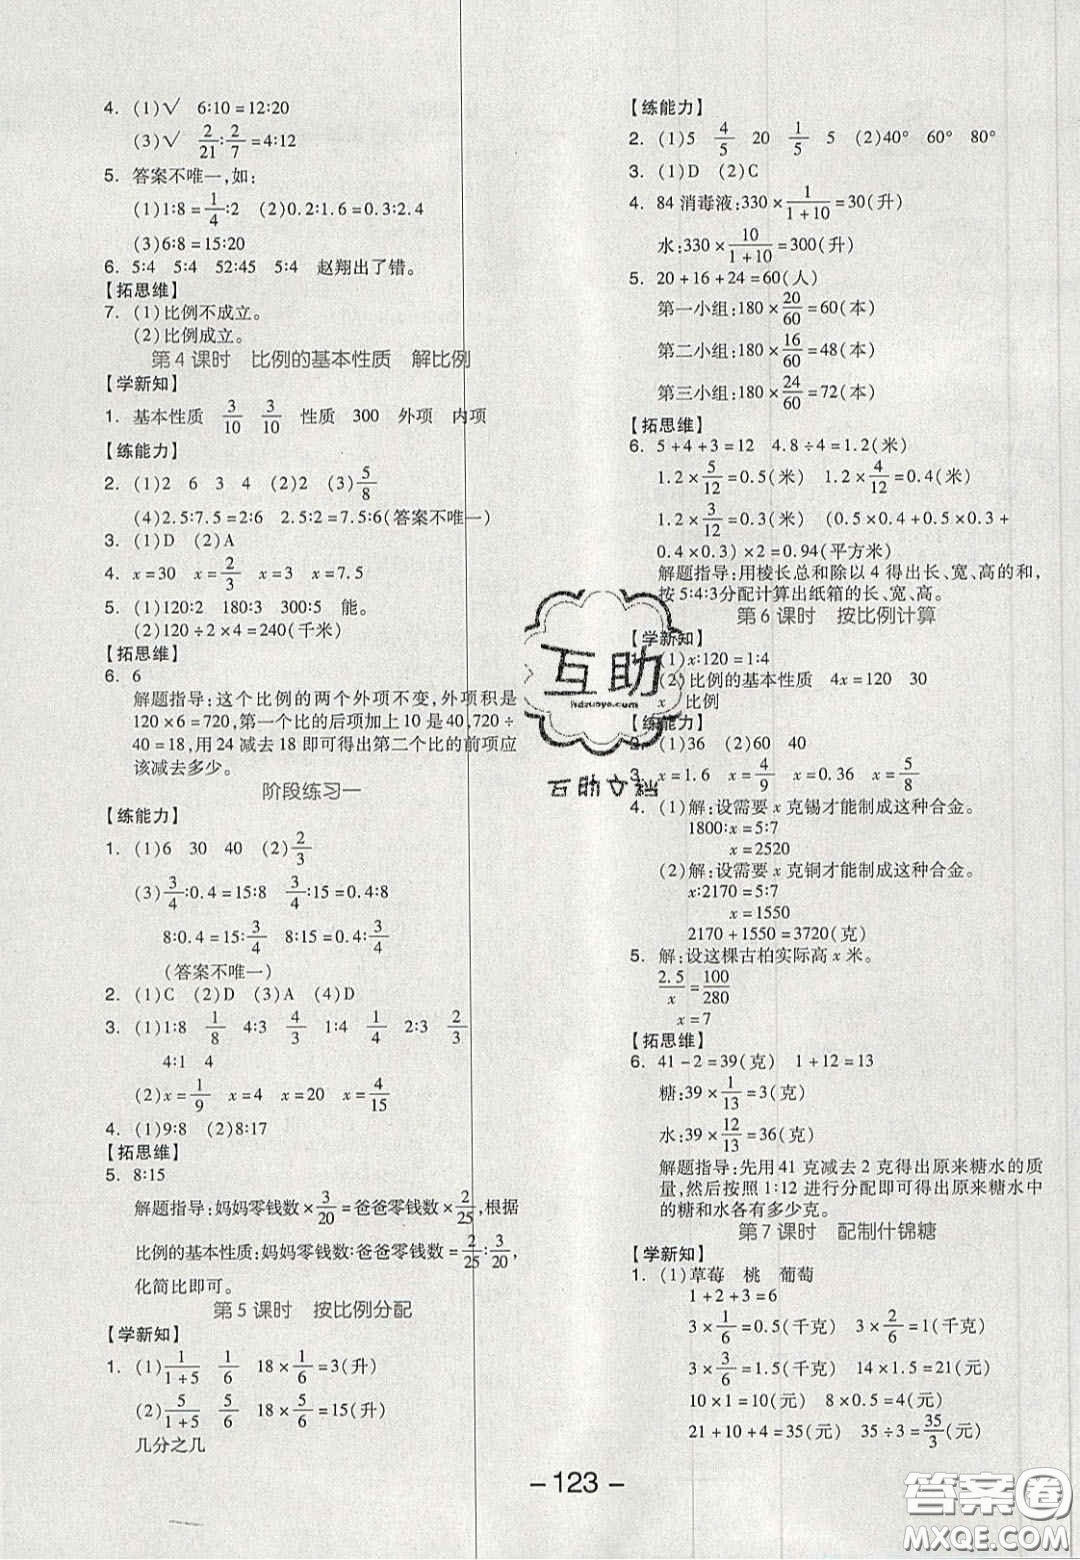 4. (1)√ 6∶10=12∶20
(3)√ 2/21∶2/7=4∶12
5. 答案不唯一,如:
(1)1∶8=1/4∶2 (2)0.2∶1.6=0.3∶2.4
(3)6∶8=15∶20
6. 5∶4 5∶4 52∶45 5∶4 赵翔出了错。
【拓思维】
7. (1)比例不成立。
(2)比例成立。
第4课时 比例的基本性质 解比例
【学新知】
1. 基本性质 3/10 3/10 性质 300 外项 内项
【练能力】
2. (1)2 6 3 4 (2)2 (3)5/8
(4)2.5∶7.5=2∶6 2.5∶2=7.5∶6(答案不唯一)
3. (1)D (2)A
4. x=30 x=2/3 x=3 x=7.5
5. (1)120∶2 180∶3 300∶5 能。
(2)120÷2×4=240(千米)
【拓思维】
6. 6
解题指导:这个比例的两个外项不变,外项积是
120×6=720,第一个比的后项加上10是40,720÷
40=18,用24减去18即可得出第二个比的前项应
该减去多少。
阶段练习一
【练能力】
1. (1)6 30 40 (2)2/3
(3)3/4∶0.4=15∶8 3/4∶15=0.4∶8
8∶0.4=15∶3/4 8∶15=0.4∶3/4
(答案不唯一)
2. (1)C (2)D (3)A (4)D
3. (1)1∶8 1/8 4∶3 4/3 1∶4 1/4 2∶3 2/3
4∶1 4
(2)x=1/9 x=4 x=20 x=4/15
4. (1)9∶8 (2)8∶17
【拓思维】
5. 8∶15
解题指导:妈妈零钱数×3/20=爸爸零钱数×2/25,根据
比例的基本性质:妈妈零钱数∶爸爸零钱数=2/25∶3/20,
化简比即可。
第5课时 按比例分配
【学新知】
1. (1)1/(1+5) 1/6 18×1/6=3(升)
(2)5/(1+5) 5/6 18×5/6=15(升)
几分之几
【练能力】
2. (1)5 4/5 20 1/5 5 (2)40° 60° 80°
3. (1)D (2)C
4. 84消毒液:330×1/(1+10)=30(升)
水:330×10/(1+10)=300(升)
5. 20+16+24=60(人)
第一小组:180×20/60=60(本)
第二小组:180×16/60=48(本)
第三小组:180×24/60=72(本)
【拓思维】
6. 5+4+3=12 4.8÷4=1.2(米)
1.2×5/12=0.5(米) 1.2×4/12=0.4(米)
1.2×3/12=0.3(米) (0.5×0.4+0.5×0.3+
0.4×0.3)×2=0.94(平方米)
解题指导:用棱长总和除以4得出长、宽、高的和,
按5∶4∶3分配计算出纸箱的长、宽、高。
第6课时 按比例计算
【学新知】
(1)x∶120=1∶4
(2)比例的基本性质 4x=120 30
x 比例
【练能力】
2. (1)36 (2)60 40
3. x=1.6 x=4/9 x=3.2 x=5/8
4. (1)解:设需要x克锡才能制成这种合金。
1800∶x=5∶7
x=2520
(2)解:设需要x克铜才能制成这种合金。
x∶2170=5∶7
x=1550
2170+1550=3720(克)
5. 解:设这棵古柏实际高x米。
2.5/x=100/280
x=7
【拓思维】
6. 41-2=39(克) 1+12=13
糖:39×1/13=3(克)
水:39×12/13=36(克)
解题指导:先用41克减去2克得出原来糖水的质
量,然后按照1∶12进行分配即可得出原来糖水中
的糖和水各有多少克。
第7课时 配制什锦糖
【学新知】
1. (1)草莓 桃 葡萄
1+2+3=6
3×1/6=0.5(千克) 3×2/6=1(千克)
3×3/6=1.5(千克) 14×1.5=21(元)
10×1=10(元) 8×0.5=4(元)
21+10+4=35(元) 35÷3=35/3(元)
互助
hdzuoye.com
互助文档
-123-
答案圈
MXQE.COM